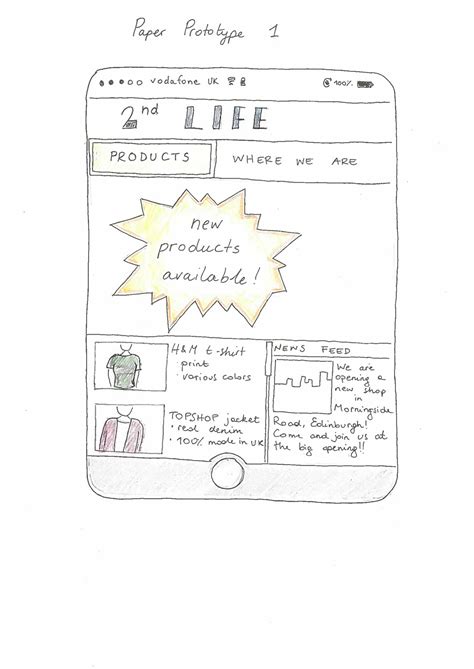 Paper Prototype 1
vodafone UK
100%
2nd LIFE
PRODUCTS
WHERE WE ARE
new
products
available!
H&M t-shirt
print
· various colors
TOPSHOP jacket
· red denim
· 100% made in UK
NEWS FEED
We are
opening a
new shop
in
Morningside
Road, Edinburgh!
Come and join us at
the big opening!!